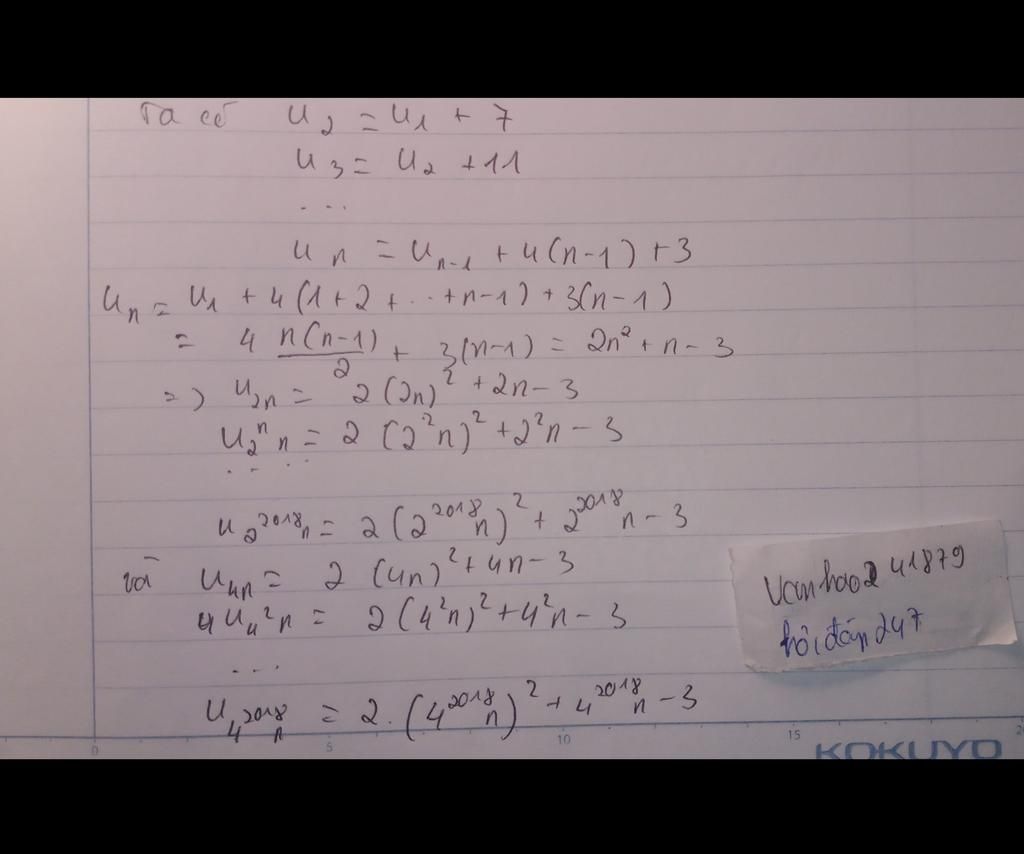 Ta có u₂ = u₁ + 7
u₃ = u₂ + 11
...
uₙ = uₙ₋₁ + 4(n-1) + 3
uₙ = u₁ + 4(1+2+...+n-1) + 3(n-1)
= 4 n(n-1)/2 + 3(n-1) = 2n² + n - 3
=> u_2n = 2(2n)² + 2n - 3
u_2^n n = 2(2²n)² + 2²n - 3
....
u_2^2018 n = 2(2^2018 n)² + 2^2018 n - 3
và u_4n = 2(4n)² + 4n - 3
4u_4² n = 2(4²n)² + 4²n - 3
...
u_4^2018 n = 2.(4^2018 n)² + 4^2018 n - 3
Vanhao241879
hỏi đáp 247
0 5 10 15 2
KOKUYO